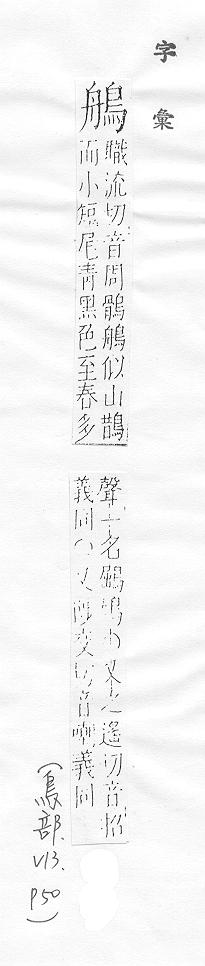 字彙
鵃
職流切音周鶻鵃似山鵲
而小短尾青黑色至春多
聲一名鶌鳩○又之遙切音招
義同○又陟交切音嘲義同
(鳥部. V13. P50)